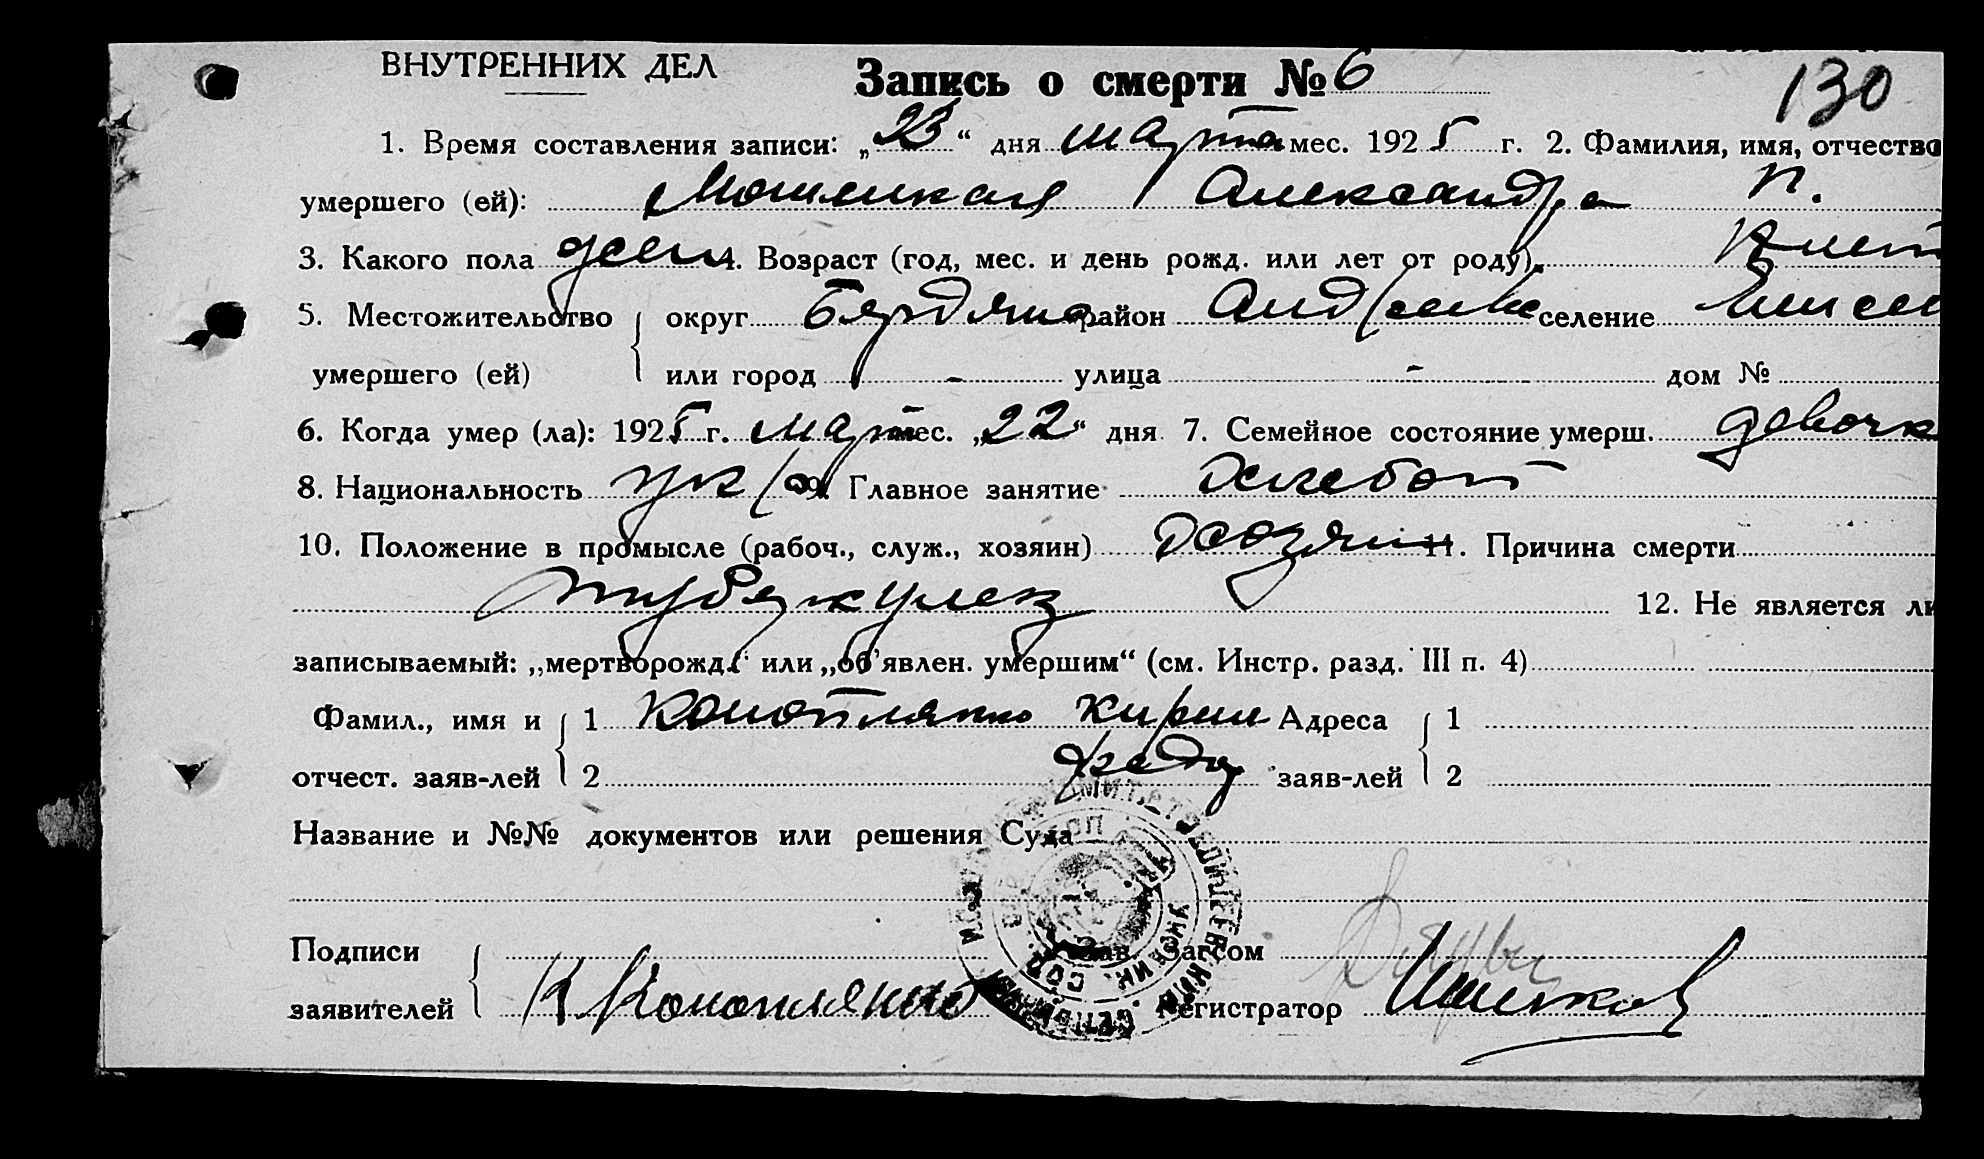 ВНУТРЕННИХ ДЕЛ
Запись о смерти № 6
130
1. Время составления записи: „23“ дня марта мес. 1925 г. 2. Фамилия, имя, отчество
умершего (ей): Александра П.
3. Какого пола жен 4. Возраст (год, мес. и день рожд. или лет от роду)
5. Местожительство округ Бердянс район Андреевс селение
умершего (ей) или город - улица - дом №
6. Когда умер (ла): 1925 г. март мес. „22“ дня 7. Семейное состояние умерш. девочк
8. Национальность укр 9. Главное занятие хлебоп
10. Положение в промысле (рабоч., служ., хозяин) хозяин 11. Причина смерти
туберкулез 12. Не является ли
записываемый: „мертворожд.“ или „об'явлен. умершим“ (см. Инстр. разд. III п. 4)
Фамил., имя и 1 Коноплянко Кирил Адреса 1
отчест. заяв-лей 2 Федор заяв-лей 2
Название и №№ документов или решения Суда
Подписи Зав. Загсом
заявителей К Коноплянко Регистратор